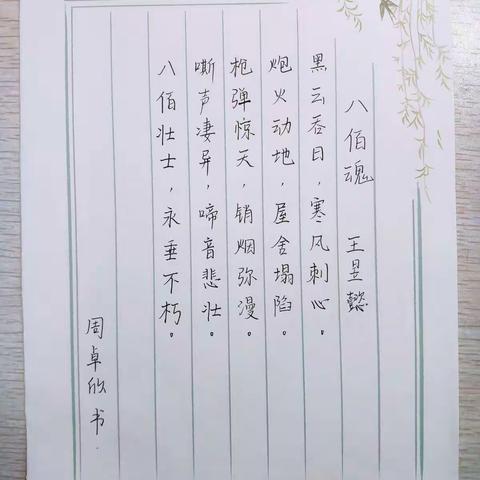 八佰魂 王昱懿
黑云吞日，寒风刺心。
炮火动地，屋舍塌陷。
枪弹惊天，销烟弥漫。
嘶声凄异，啼音悲壮。
八佰壮士，永垂不朽。
周卓欣书